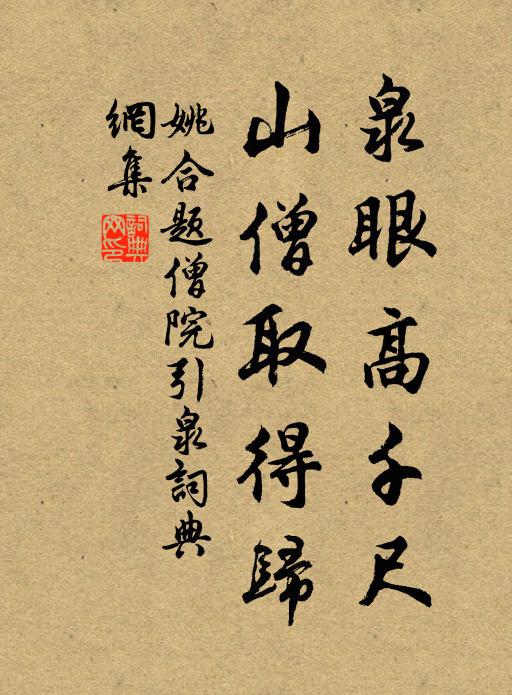 泉眼高千尺
山僧取得歸
姚合題僧院引泉詞典
網集
詞典
网印